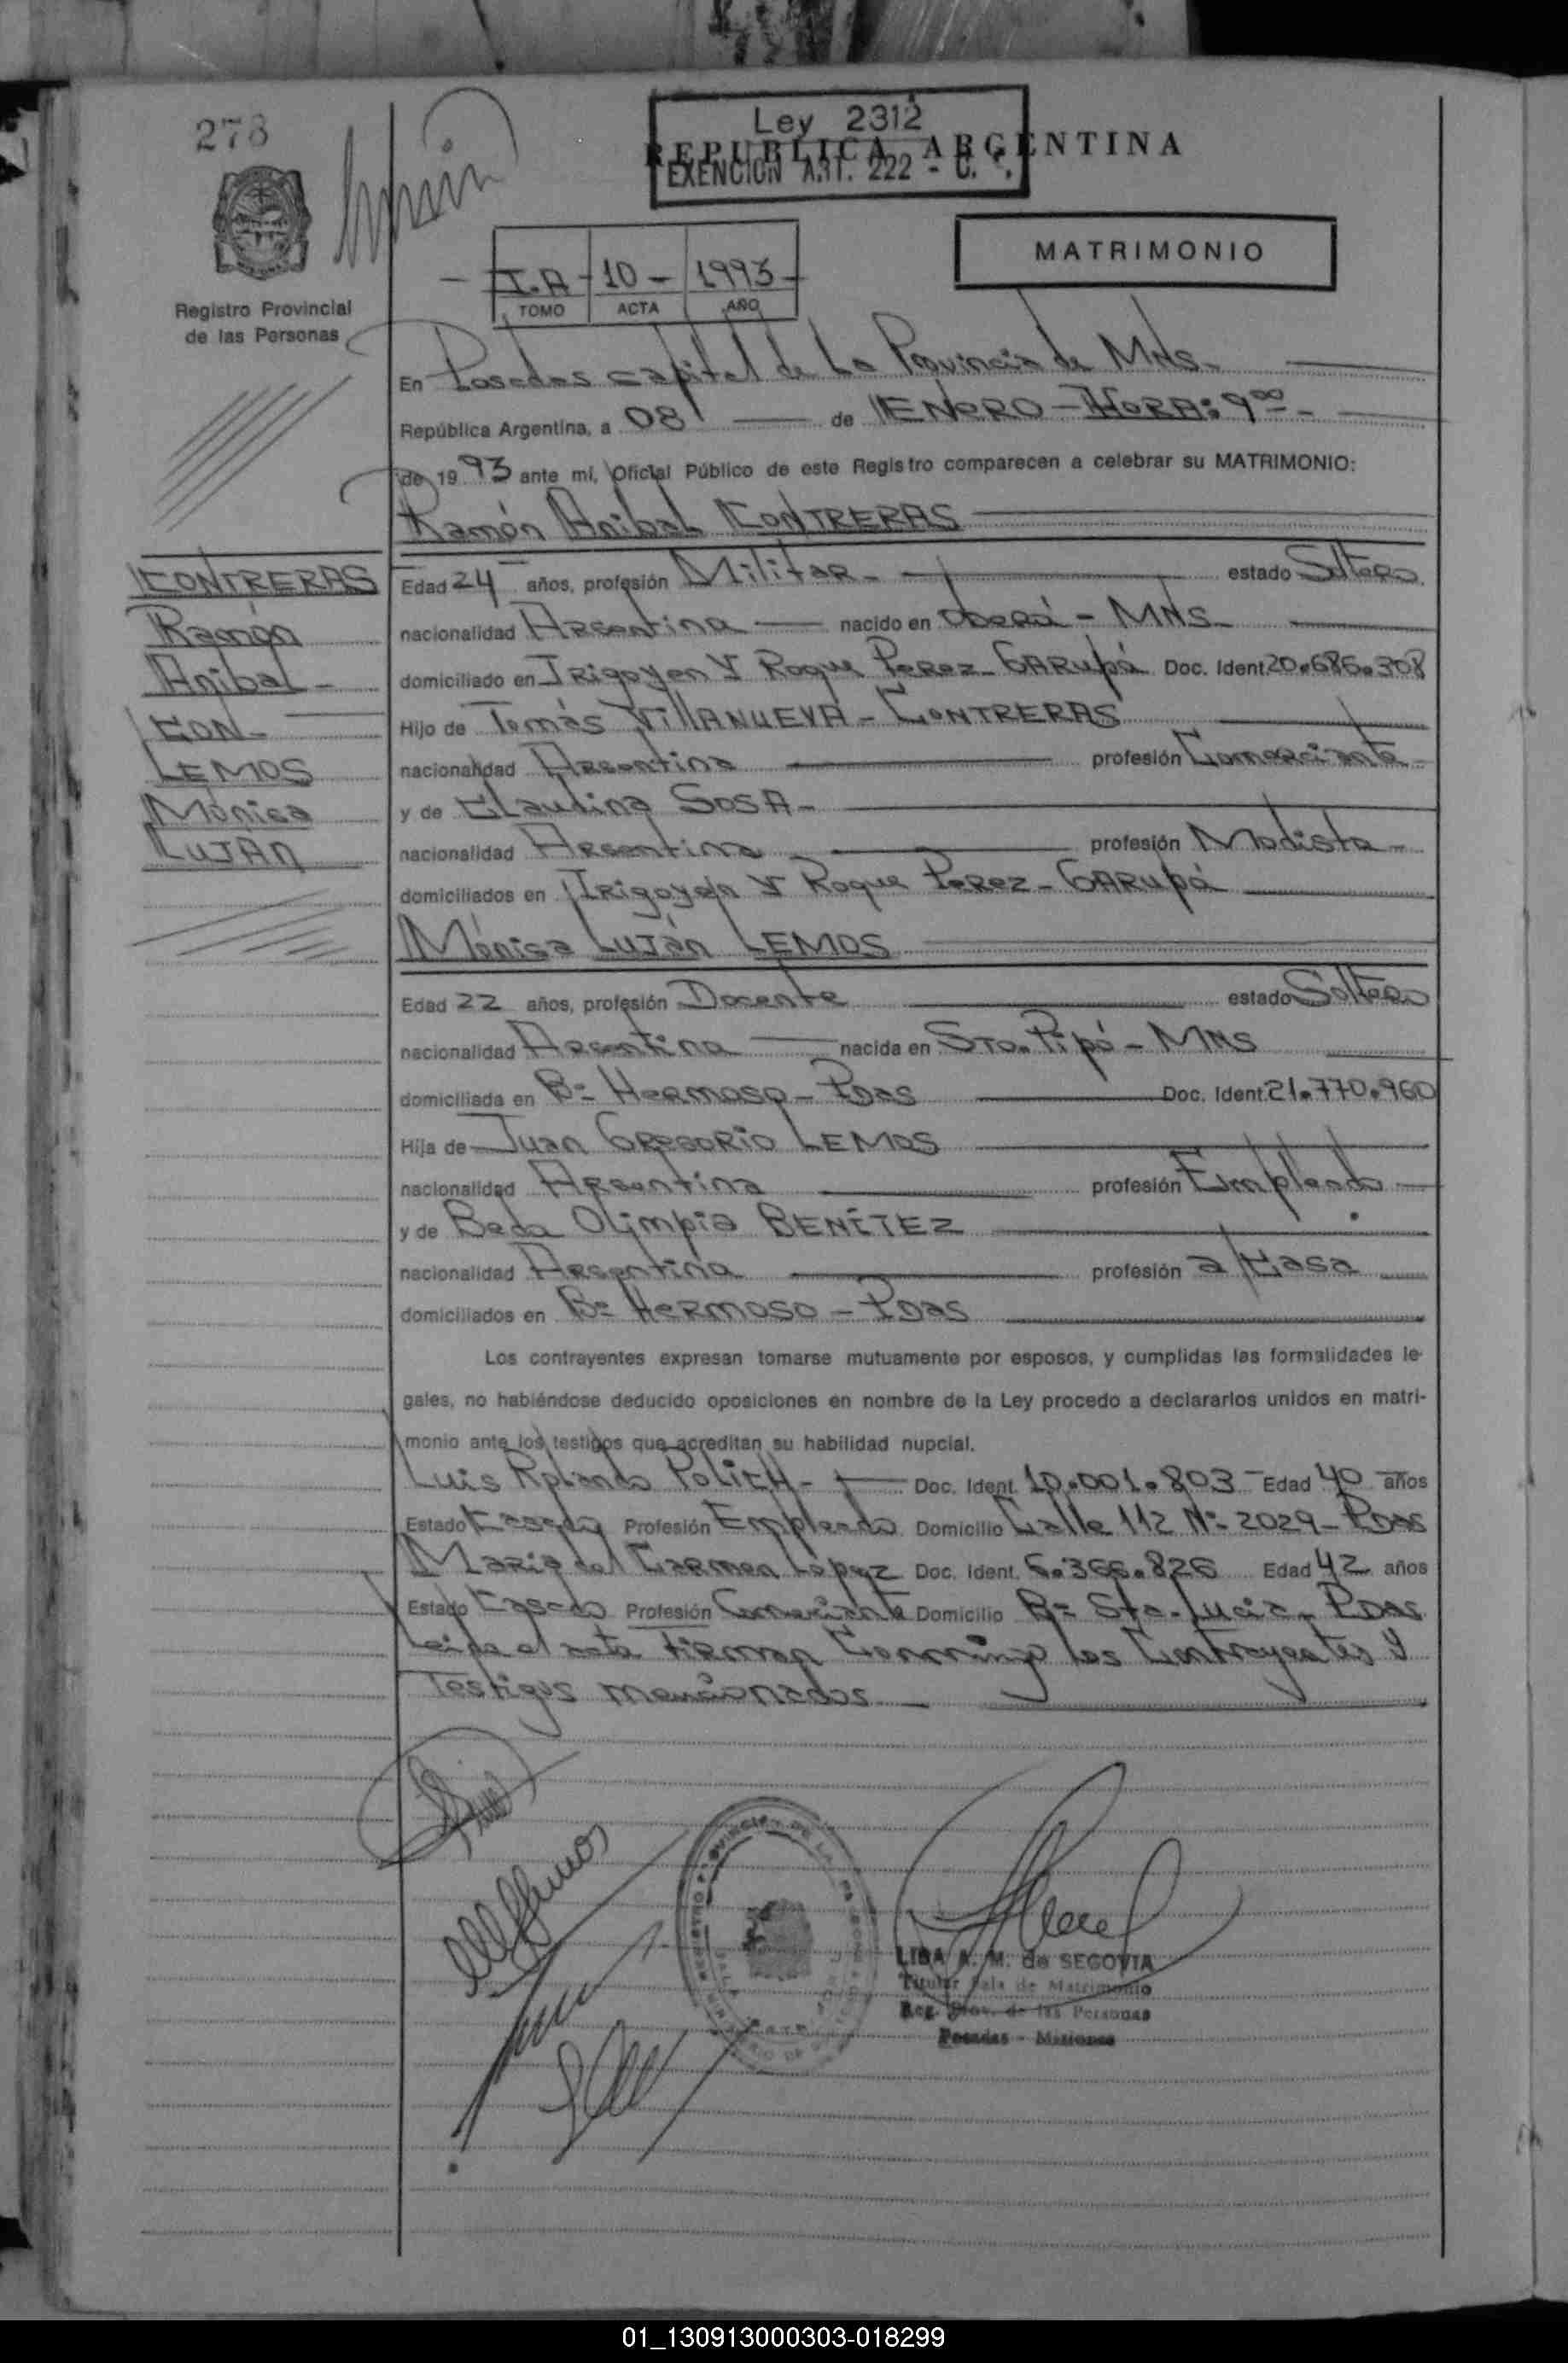 278
Ley 2312
REPUBLICA ARGENTINA
EXENCION ART. 222 -
MATRIMONIO
I.A - 10 - 1993 -
TOMO ACTA AÑO
Registro Provincial
de las Personas
En Posadas capital de La Provincia de MNS.
República Argentina, a 08 de ENERO - HORA: 9 00 -
de 1993 ante mi, Oficial Público de este Registro comparecen a celebrar su MATRIMONIO:
Ramón Anibal CONTRERAS
CONTRERAS
Ramón
Anibal -
CON -
LEMOS
Mónica
LUJAN
Edad 24 años, profesión Militar - estado Soltero
nacionalidad Argentina nacido en Oberá - MNS -
domiciliado en Irigoyen Y Roque Perez - GARUpá Doc. Ident. 20.686.308
Hijo de Tomás VillANUEVA - CONTRERAS
nacionalidad Argentina profesión Comerciante -
y de Claudina SOSA -
nacionalidad Argentina profesión Modista -
domiciliados en Irigoyen Y Roque Perez - GARUpá
Mónica LUJán LEMOS
Edad 22 años, profesión Docente estado Soltera
nacionalidad Argentina nacida en Sto. Pipó - MNS
domiciliada en Bº Hermoso - Pdas Doc. Ident. 21.770.960
Hija de Juan GREGORIO LEMOS
nacionalidad Argentina profesión Empleado
y de Beda Olimpia BENÍTEZ
nacionalidad Argentina profesión a/casa
domiciliados en Bº HERMOSO - Pdas
Los contrayentes expresan tomarse mutuamente por esposos, y cumplidas las formalidades le-
gales, no habiéndose deducido oposiciones en nombre de la Ley procedo a declararlos unidos en matri-
monio ante los testigos que acreditan su habilidad nupcial.
Luis Rolando - Doc. Ident. 10.001.803 - Edad 40 años
Estado Casado Profesión Empleado Domicilio Calle 112 Nº 2029 - Pdas
Maria del Carmen López Doc. Ident. 6.366.826 Edad 42 años
Estado Casado Profesión Comerciante Domicilio Bº Sta. Lucia - Pdas
Leida el acta Firman Conmigo los Contrayentes Y
Testigos mencionados
LIDA A. M. de SEGOVIA
Titular Sala de Matrimonio
Reg. Prov. de las Personas
Posadas - Misiones
01_130913000303-018299